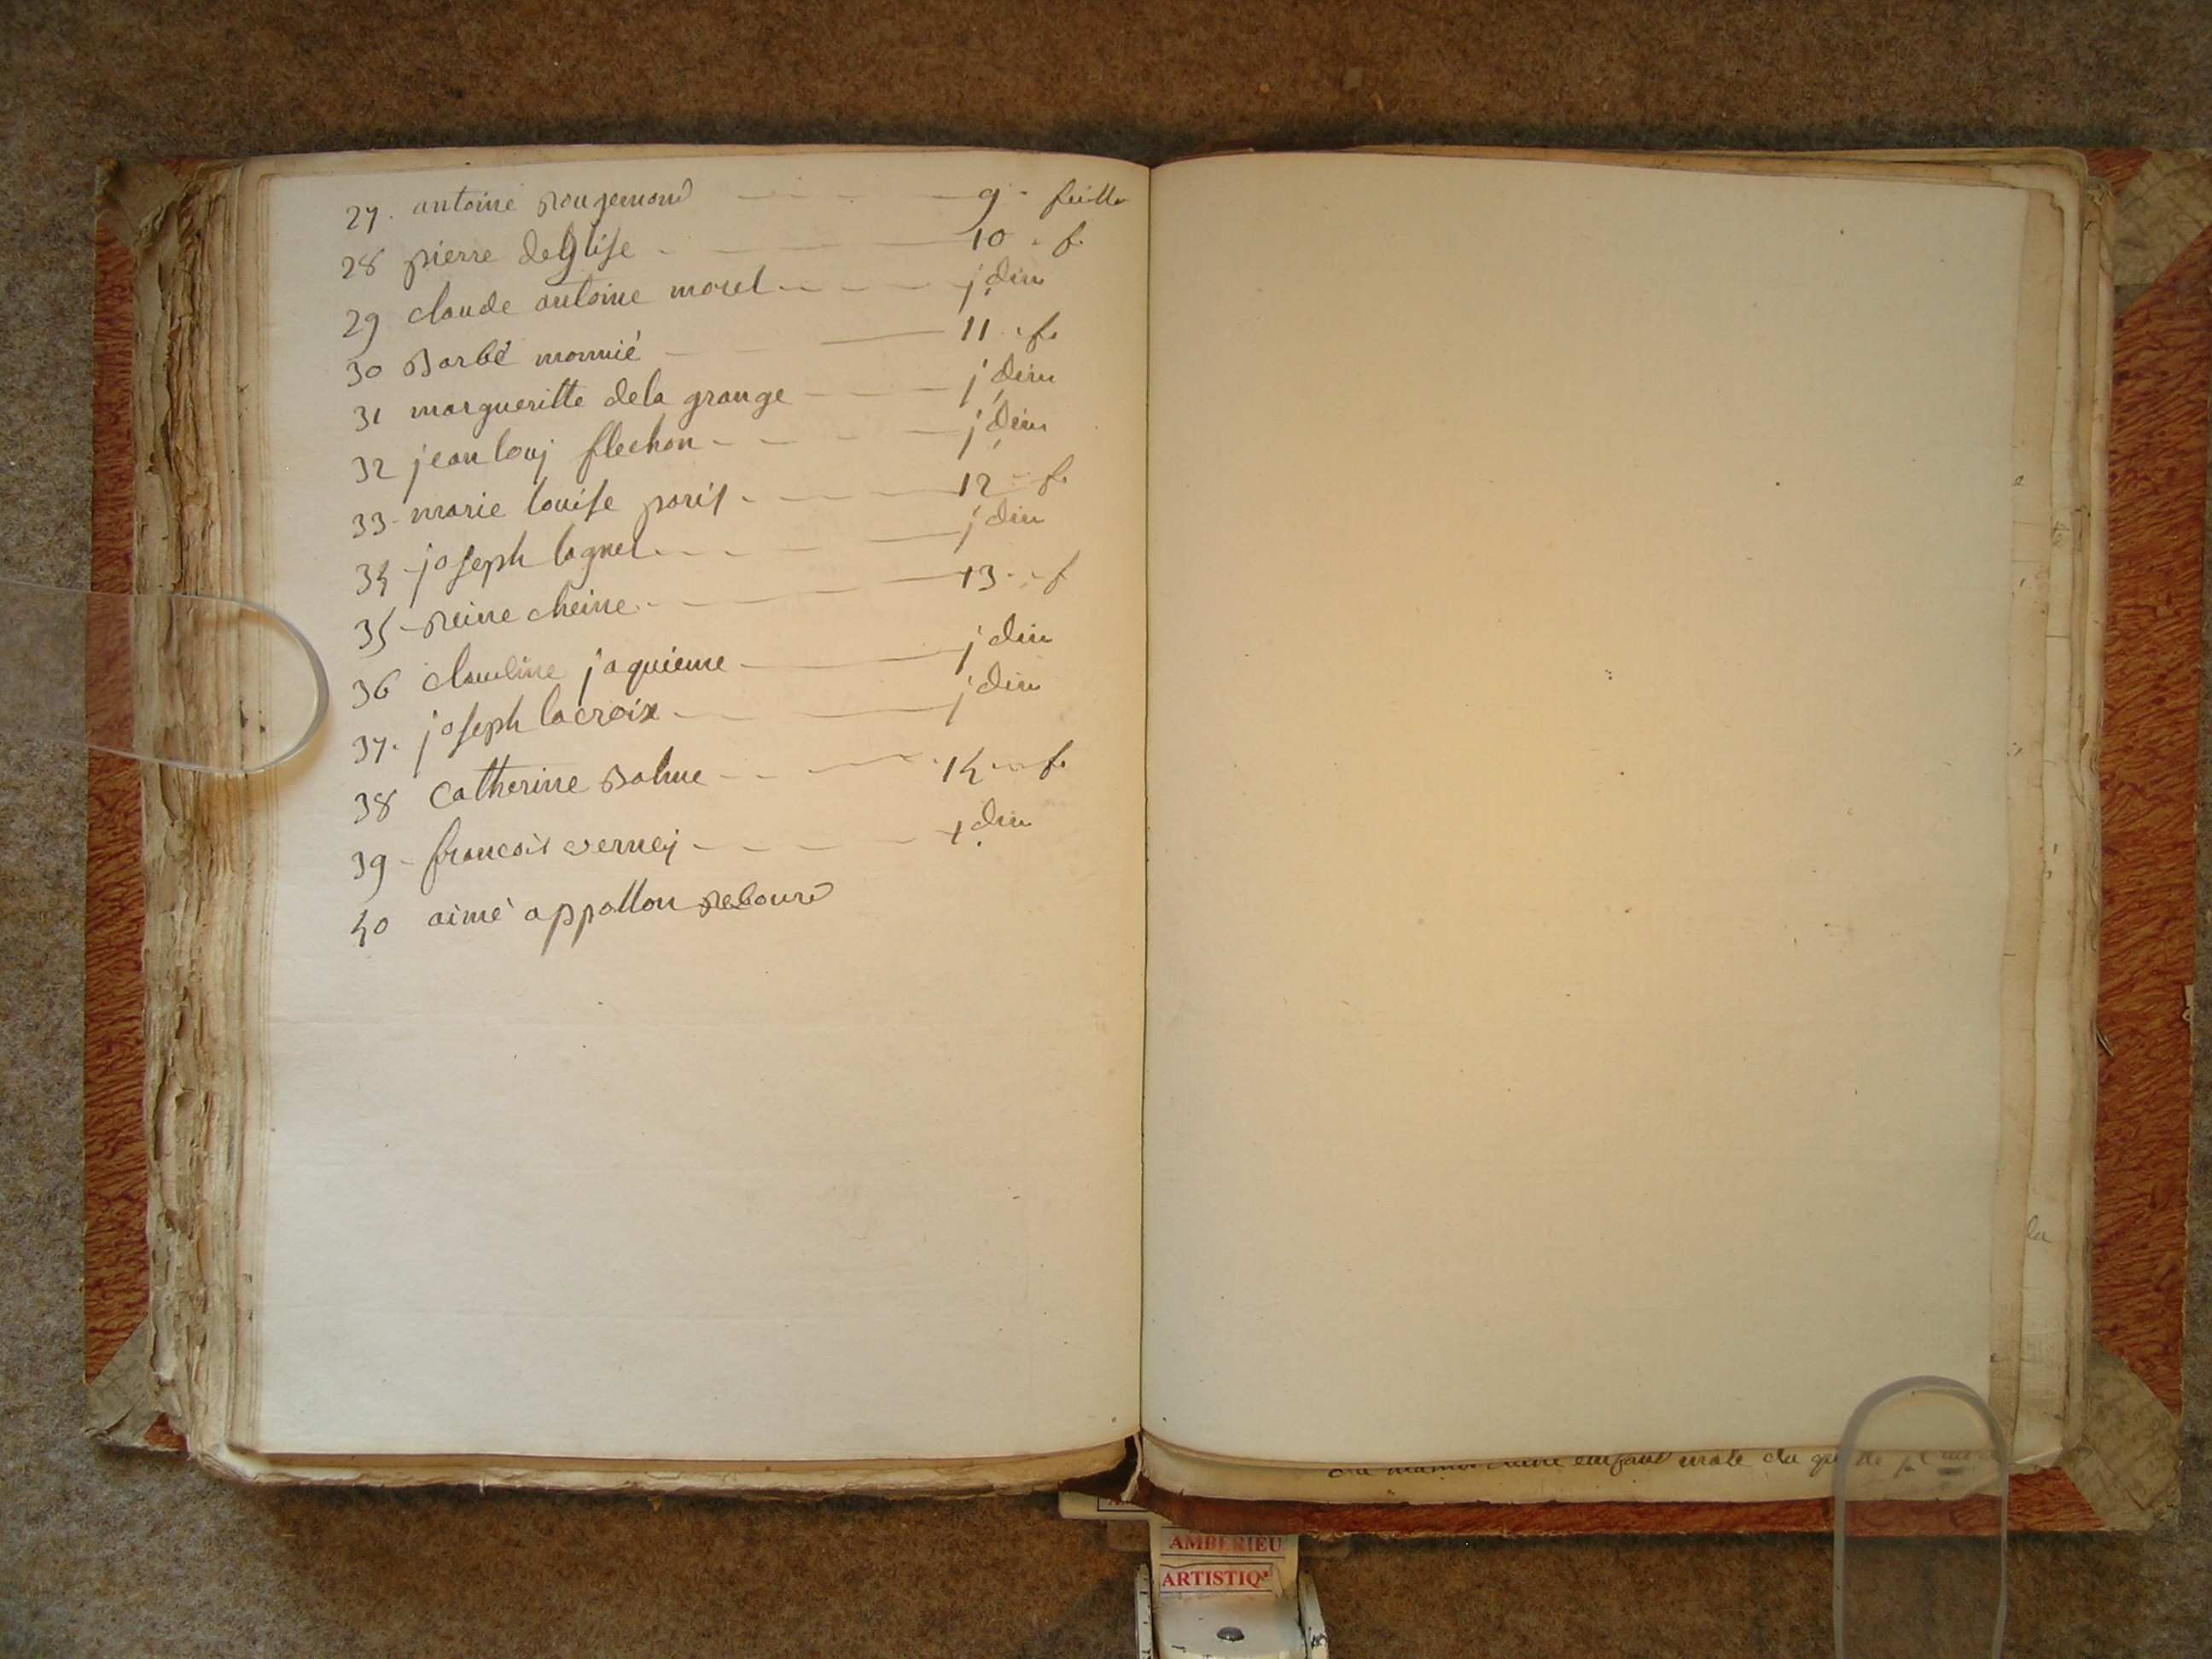 27. antoine Rougemond - - - - 9 - feuille
28 pierre deglise - - - 10 - f.
29 claude antoine morel - - - - jdem
30 Barbé monnié - - - 11 - f.
31 margueritte dela grange - - - jdem
32 jean louj flechon - - - - jdem
33 - marie louise paris - - - 12 - f.
34 - joseph lagnel - - - - jdem
35 - Reine cheine - - - 13 - f
36 claudine jaquieme - - jdem
37. joseph lacroix - - - jdem
38 Catherine Balme - - - 14 - f.
39 - francois verney - - - - jdem
40 aimé appollon Reboure
enfant male du
la
AMBERIEU
ARTISTIQ